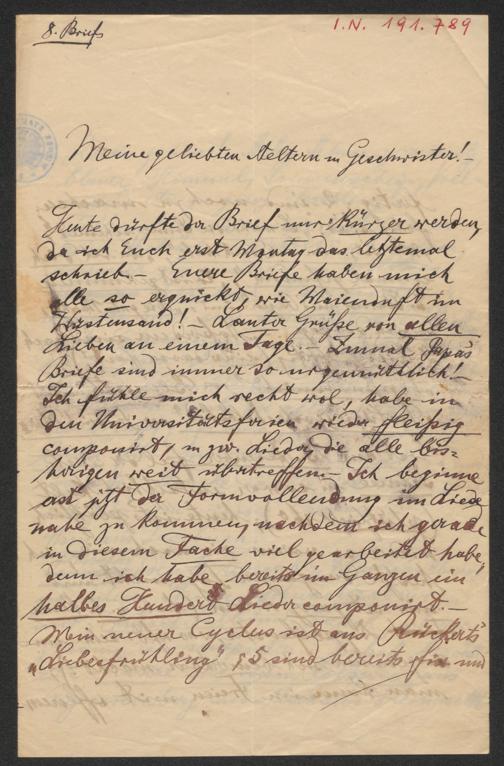 8. Brief
I.N. 191.789
Meine geliebten Aeltern u Geschwister!-
Heute dürfte der Brief nur kürzer werden,
da ich Euch erst Montag das letztemal
schrieb. - Euere Briefe haben mich
alle so erquickt, wie Maienduft im
Wüstensand! - Lauter Grüße von allen
Lieben an einem Tage. - Zumal Papas
Briefe sind immer so urgemütlich!-
Ich fühle mich recht wol, habe in
den Universitätsferien wieder fleißig
componirt, u zw. Lieder, die alle bis-
herigen weit übertreffen. - Ich beginne
erst jtzt der Formvollendung im Liede
nahe zu kommen, nachdem ich gerade
in diesem Fache viel gearbeitet habe,
denn ich habe bereits im Ganzen ein
halbes Hundert Lieder componirt. -
Mein neuer Cyclus ist aus Rückert's
„Liebesfrühling“, 5 sind bereits fix und